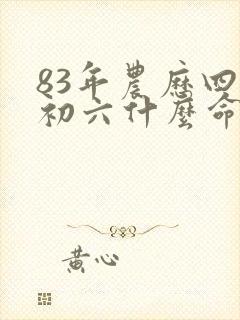 83年農歷四
初六什麼命
黃心